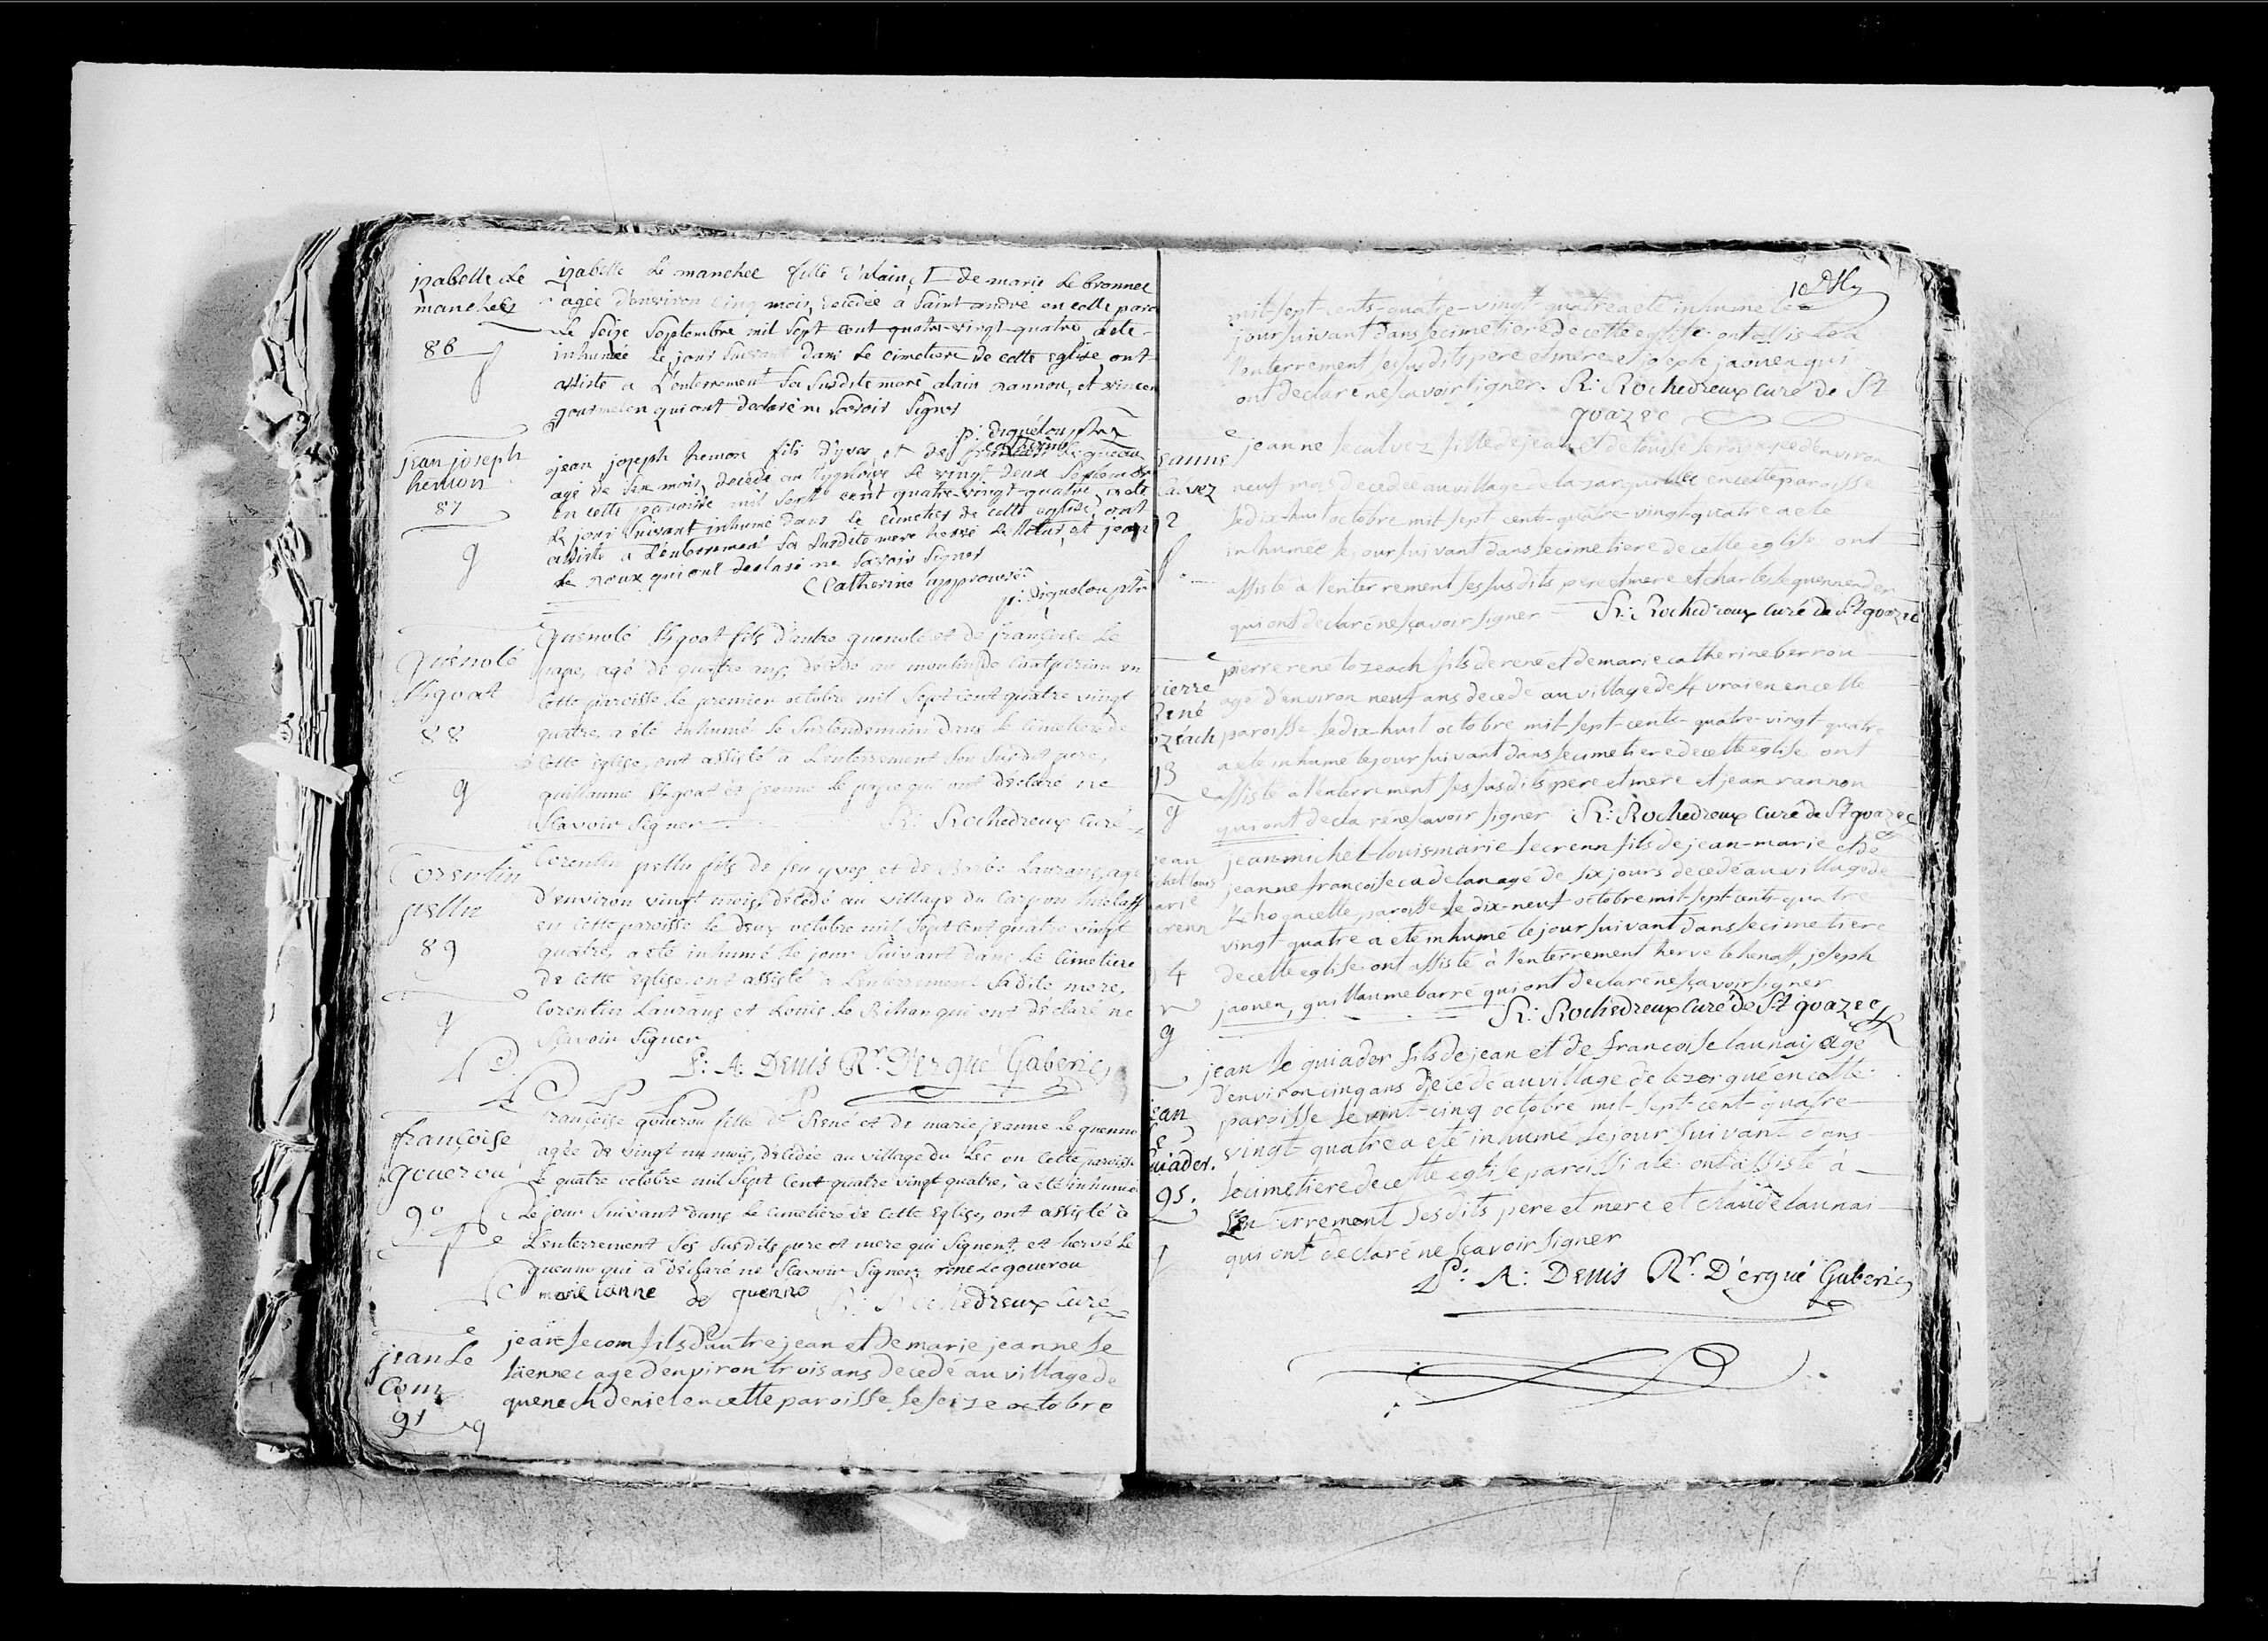 izabelle Le
manchec
86
izabelle Le manchec fille d'alain, Et de marie Le bronnec
agée d'environ Cinq mois, decedée a Saint andré en cette paro
Le Seize Septembre mil Sept cent quatre-vingt-quatre a eté
inhumée Le jour Suivant dans Le cimetiere de cette Eglise, ont
assisté a L'enterrement Sa Susdite mere, alain rannou, et vincen
gourmelen qui ont declaré ne Scavoir Signer
jean joseph
hemon
87
g
jean joseph hemon fils d'yves, et de
agé de Six mois, decedé au Le vingt-deux Septembre
en cette paroisse mil Sept cent quatre-vingt-quatre, a eté
Le jour Suivant inhumé dans Le cimetier de cette eglise, ont
assisté a L'enterrement Sa Susdite mere hervé et jean
Le roux qui ont declaré ne Savoir Signer
Catherine approuvé
Guénolé
88
g
Guenolé fils d'autre guenolé et de françoise Le
pape, agé de quatre ans, décédé au moulin de en
Cette paroisse le premier octobre mil Sept Cent quatre vingt
quatre, a été inhumé le Surlendemain dans le Cimetiere de
Cette Eglise, ont assisté à Lenterrement Son Susdit pere,
guillaume et jeanne Le pape qui ont déclaré ne
Scavoir Signer R: Rochedreux Curé
Corentin
89
g
Corentin fils de feu yves et de Barbe Laurans, agé
D'environ vingt mois, décédé au village du
en Cette paroisse le deux octobre mil Sept Cent quatre vingt
quatre, a été inhumé Le jour Suivant dans Le Cimetiere
de Cette Eglise, ont assisté a Lenterrement Sadite mere,
Corentin Laurans et Louis Le Bihan qui ont déclaré ne
Scavoir Signer
F: A: Denis Rr. D'ergué Gaberic
françoise
gouerou
90
françoise gouerou fille de René et de marie jeanne Le quenno
agée de vingt un mois, décédée au village du Lec en Cette paroisse
Le quatre octobre mil Sept Cent quatre vingt quatre, a été inhumée
Le jour Suivant dans Le Cimetiere de Cette Eglise, ont assisté à
Lenterrement Ses Susdits pere et mere qui Signent, et hervé Le
quenno qui a déclaré ne Scavoir Signer, rene Le gouerou
marie ianne Le quenno R: Rochedreux Curé
jean Le
Com
91 g
jean le com fils d'autre jean et de marie jeanne le
läennec agé d'environ trois ans decedé au village de
quenech deniel en cette paroisse le seize octobre
mil-sept-cents-quatre-vingt quatre a eté inhumé le
jour suivant dans le cimetiere de cette eglise ont assisté à
l'enterrement ses susdits pere et mere et joseph jaouen qui
ont declaré ne sçavoir signer. R: Rochedreux Curé de St
goazec
jeanne le calvez fille de jean et de louise agée d'environ
neuf mois decedée au village de en cette paroisse
le dix-huit octobre mil sept cents-quatre-vingt quatre a eté
inhumée le jour suivant dans le cimetiere de cette eglise ont
assisté à l'enterrement ses susdits pere et mere et charles
qui ont declaré ne sçavoir signer R: Rochedreux Curé de St goazec
eanne
Calvez
2
pierre rené lozeach fils de rené et de marie catherine berrou
agé d'environ neuf ans decedé au village de en cette
paroisse le dix-huit octobre mil-sept-cents-quatre-vingt-quatre
a eté inhumé le jour suivant dans le cimetiere de cette eglise ont
assisté a l'enterrement ses susdits pere et mere et jean rannou
qui ont declaré ne scavoir signer R: Rochedreux Curé de St goazec
ierre
René
ozéach
93
g
jean-michel-louis marie le crenn fils de jean-marie et de
jeanne françoise cadelan agé de six jours decedé au village de
paroisse le dix-neuf octobre mil-sept-cents-quatre
vingt quatre a eté inhumé le jour suivant dans le cimetiere
de cette eglise ont assisté à l'enterrement herve le henaff, joseph
jaouen, guillaume barré qui ont declaré ne sçavoir signer
R: Rochedreux Curé de St goazec
jean
ichel louis
arie
crenn
4
g
jean le guiader fils de jean et de francoise launai agé
d'environ cinq ans decedé au village de lezergué en cette
paroisse le vint-cinq octobre mil-sept-cent-quatre
vingt quatre a eté inhumé le jour suivant dans
le cimetiere de cette eglise paroissiale ont assisté à
L'enterrement ses dits pere et mere et claude launai
qui ont declaré ne sçavoir signer
F: A: Denis Rr. D'ergué Gaberic
ean
Le
Guiader.
95.